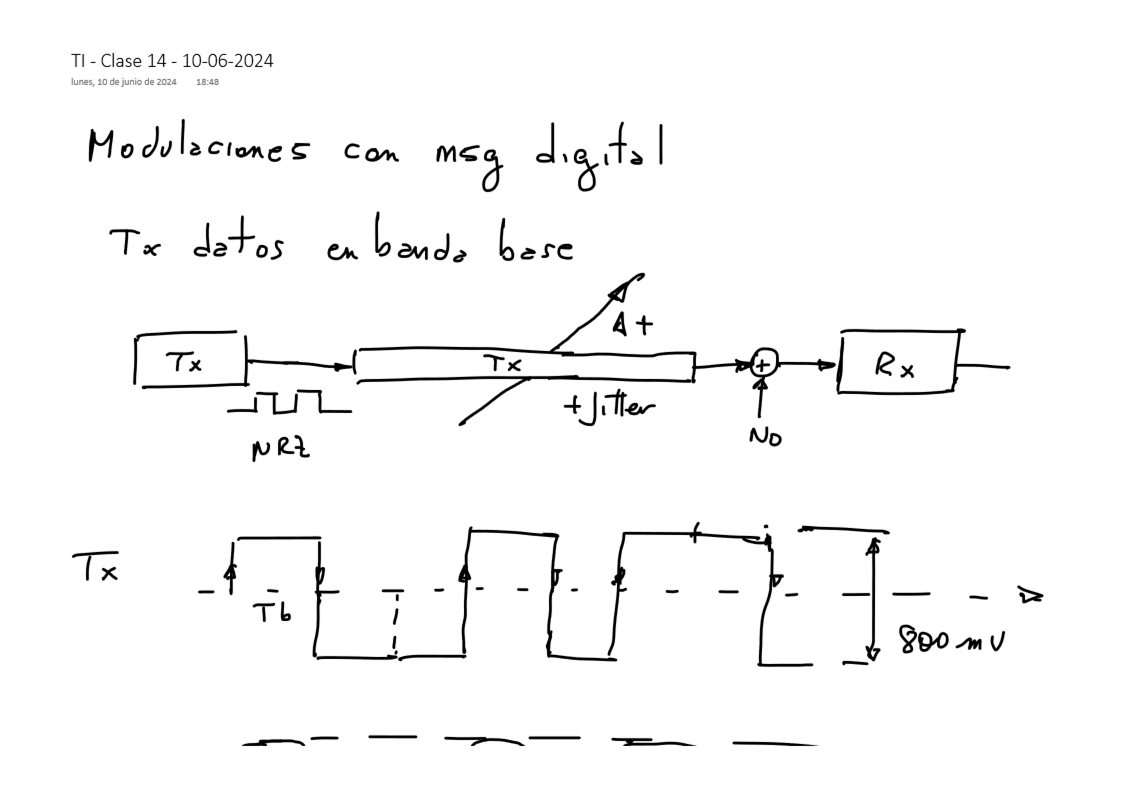 TI - Clase 14 - 10-06-2024
lunes, 10 de junio de 2024 18:48
Modulaciones con msg digital
Tx datos en banda base
Δt
Tx Tx + Rx
+Jitter
NRZ
No
Tx
Tb
800 mV